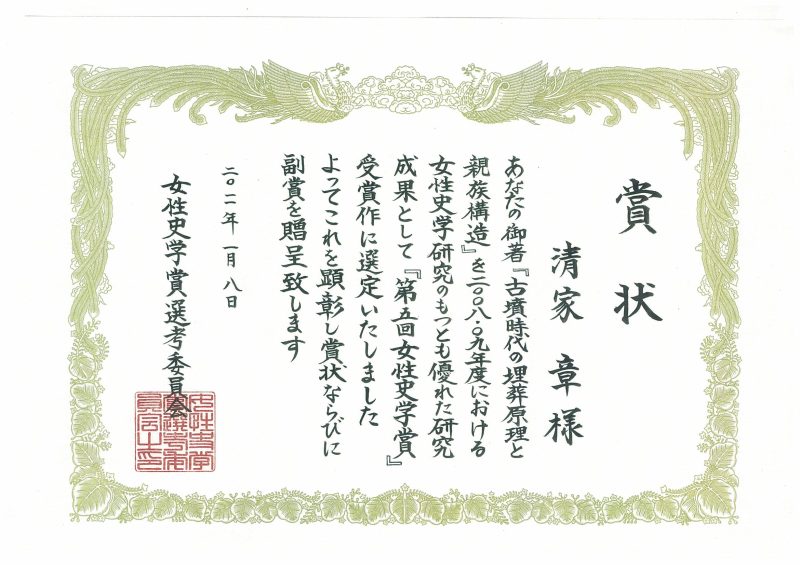 賞状
清家 章 様
あなたの御著『古墳時代の埋葬原理と
親族構造』を二〇〇八・〇九年度における
女性史学研究のもつとも優れた研究
成果として『第五回女性史学賞』
受賞作に選定いたしました
よってこれを顕彰し賞状ならびに
副賞を贈呈致します
二〇一一年 一月 八日
女性史学賞選考委員会